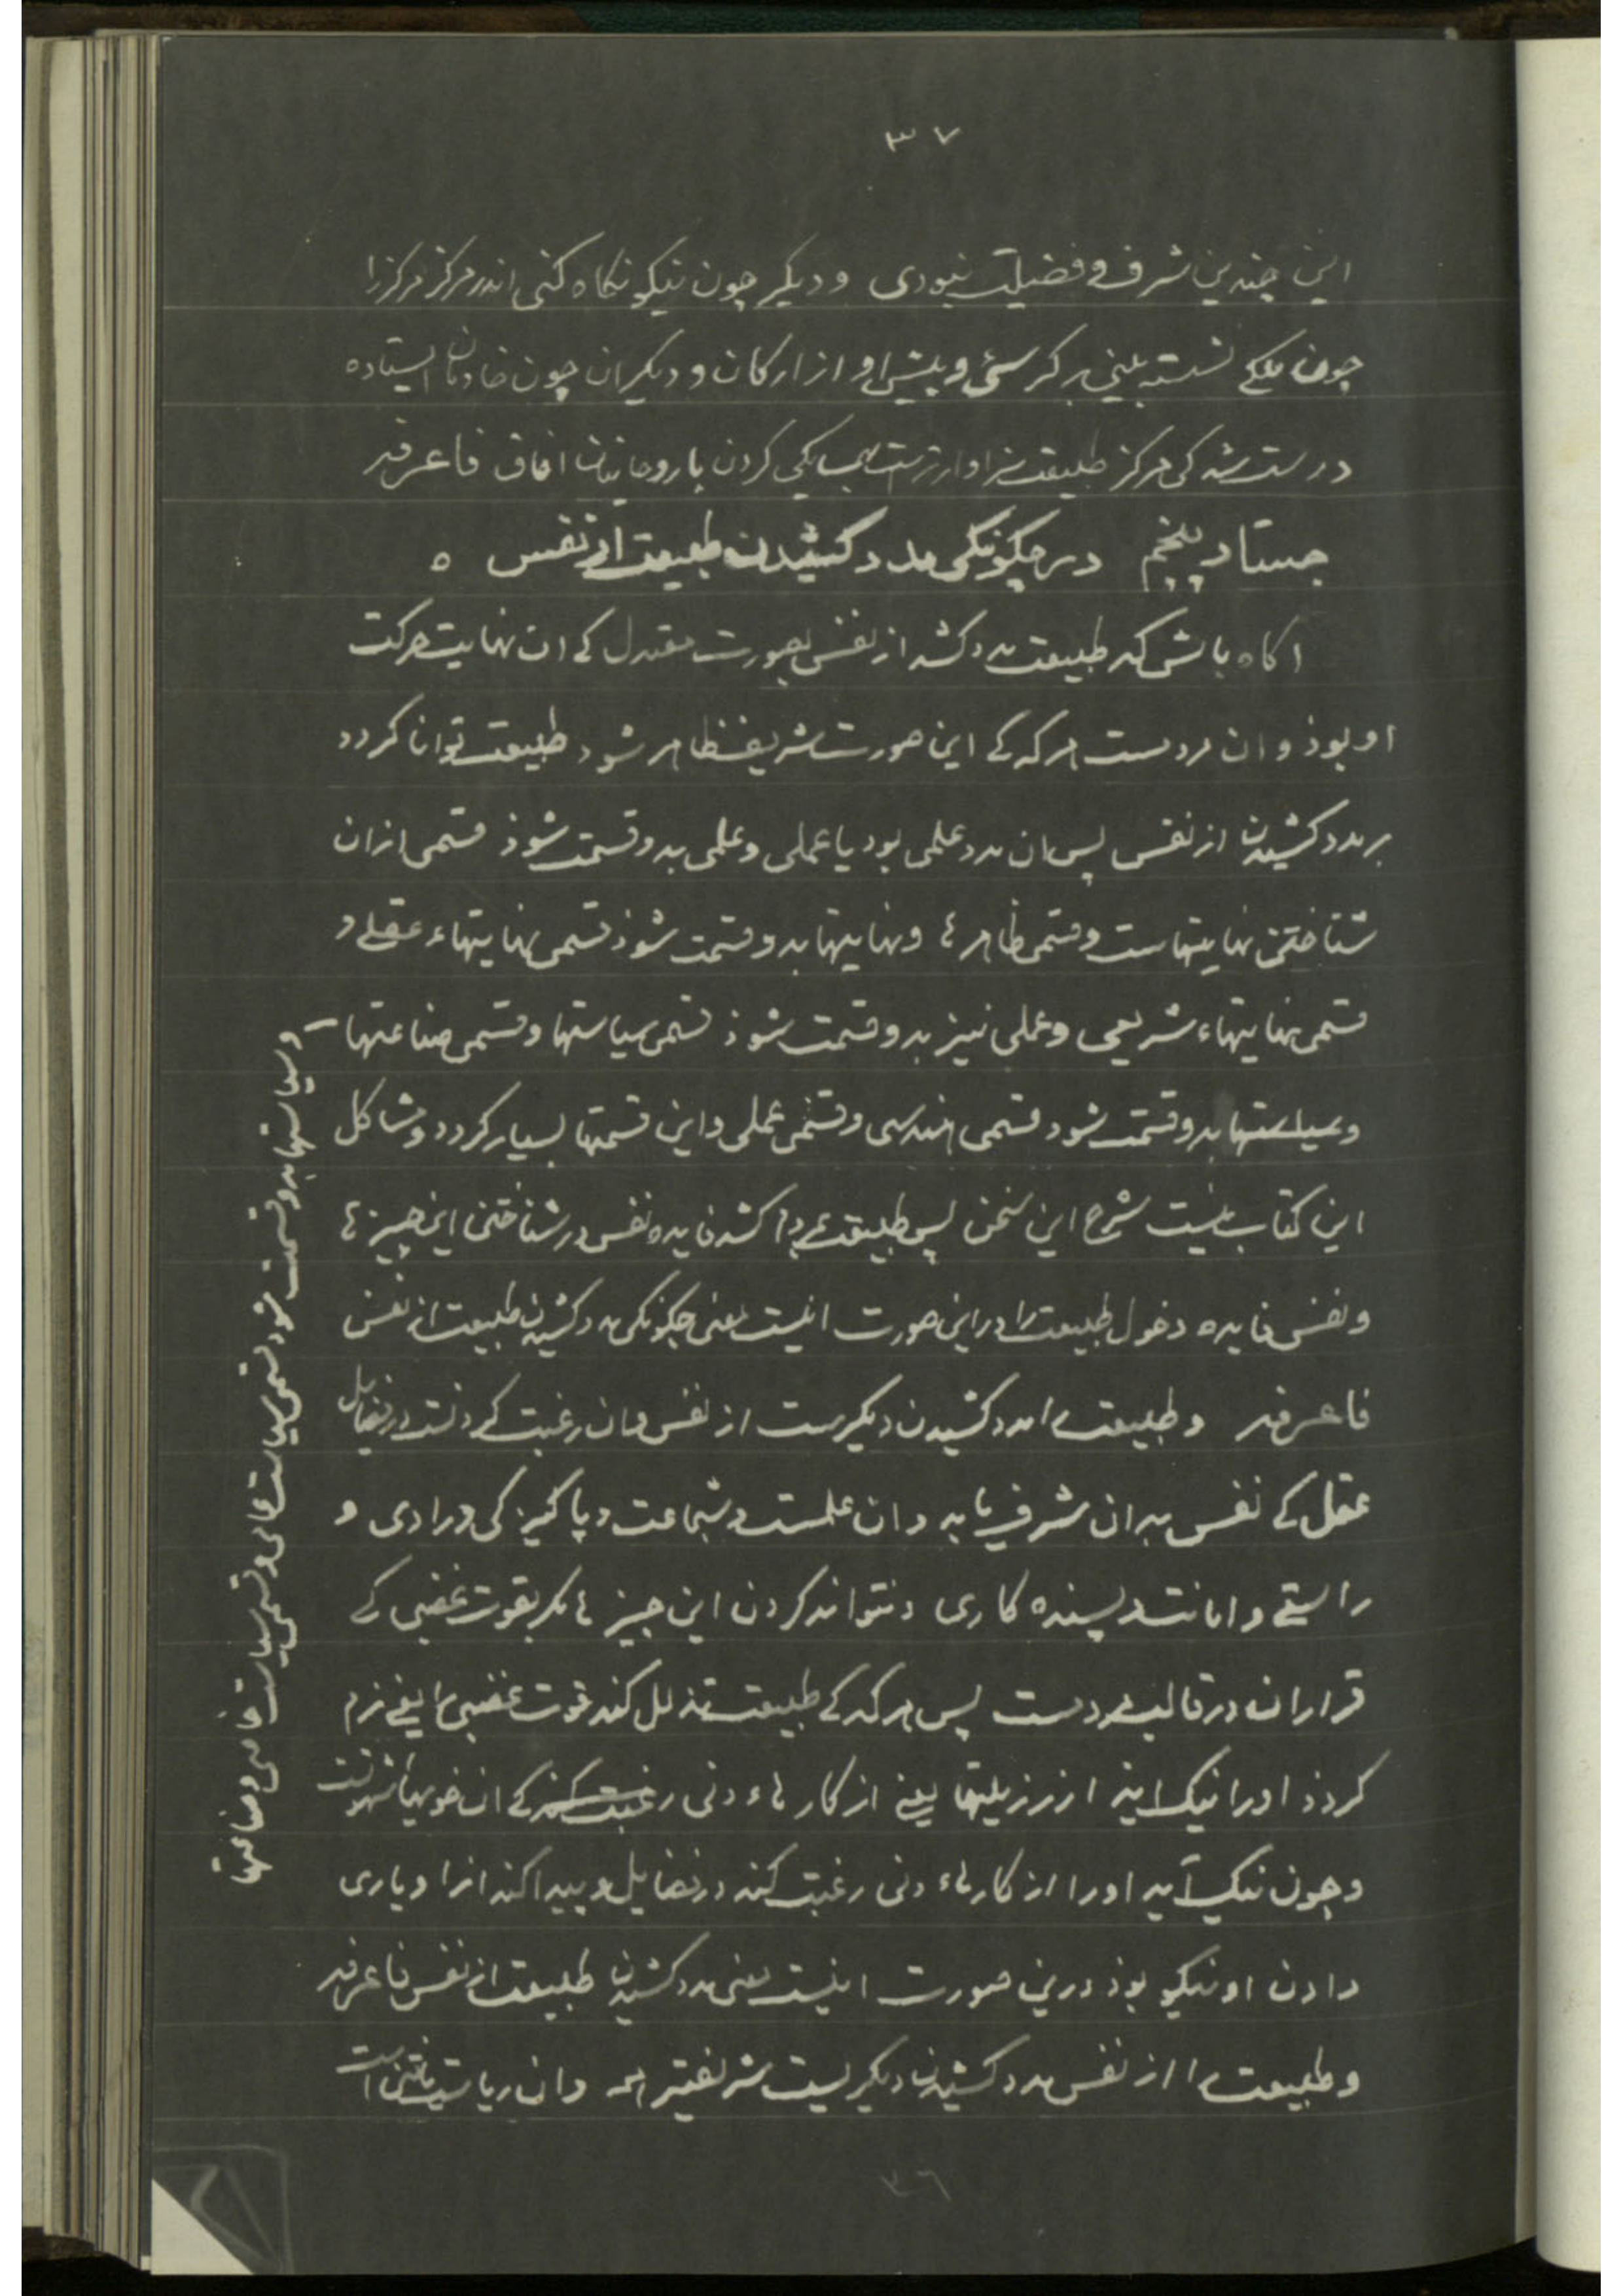 ٣٧
این چندین شرف و فضیلت نبودی و دیکر چون نیکو نکاه کنی اندر مرکز مرکز را
چون ملکے نشسته بینی بر کرسئ و پیش او از ارکان و دیکران چون خادمان ایستاده
درست شد کی مرکز طبیعت سزاوارترست بیکی کردن با روحانیان افاق فاعرفه
جستار پنجم در چکونکی مدد کشیدن طبیعت از نفس ه
اکاه باش که طبیعت مدد کشد از نفس بصورت معتدل کے ان نهایت حرکت
او بوذ و ان مردست هرکه کے این صورت شریف ظاهر شود طبیعت توانا کردد
بر مدد کشیدن از نفس پس ان مدد علمی بود یا عملی و علمی بدو قسمت شوذ قسمی ازان
شناختن نهایتهاست و قسمی ظاهرها و نهایتها بدو قسمت شوذ قسمی نهایتهاء عقلے و
قسمی نهایتهاء شریعی و عملی نیز بدو قسمت شوذ قسمی سیاستها و قسمی صناعتها
وسیاستها بدو قسمت شود قسمی هندسی و قسمی عملی و این قسمتها بسیار کردد و مشاکل
این کتاب نیست شرح این سخن پس طبیعت مدد کشد فایده نفس در شناختن این چیزها
و نفس فایده دخول طبیعت را در این صورت اینست معنی چکونکی مدد کشیدن طبیعت از نفس
فاعرفه و طبیعت را مدد کشیدن دیکرست از نفس و ان رغبت کردنست در فضایل
عقل کے نفس بدان شرف یابد و ان علمست و شجاعت و پاکیزکی و رادی و
راستے و امانت و پسنده کاری و نتواند کردن این چیزها مکر بقوت غضبی کے
قرار ان در قالب مردست پس هرکه کے طبیعت تذلل کند قوت غضبی را یعنے نرم
کردذ او را ننک اید از رزیلتها یعنے از کارهاء دنی رغبت کند کے ان خویهاء شهوتست
و چون ننک آید او را از کارهاء دنی رغبت کند در فضایل و پیدا کند انرا و یاری
دادن او نیکو بوذ درین صورت اینست معنی مدد کشیدن طبیعت از نفس فاعرفه
و طبیعت را از نفس مدد کشیدن دیکریست شریفتر همه و ان ریاست یافتن است
وسیاستها بدو قسمت شود قسمی سیاست عامی و قسمی سیاست خاصی و صناعتها
٣٦